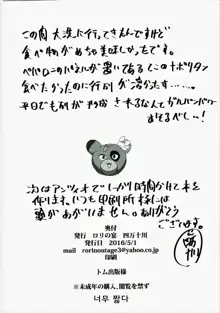 この間大洗に行ってきたんですけど
食べ物がめちゃ美味しかったです。
ペパロニのパネルが置いてあるとこのナポリタン
食べたかったのに行列が
平日でも列が形成されるなんてガルパンパワー
おそるべし…!
次はアンツィオでしっかり時間かけて本を
作ります。いつも印刷所様には
頭があがりません。ありがとう
ございます。
奥付
発行 ロリの宴 四万十川
発行日 2016/5/1
mail rorinoutage3@yahoo.co.jp
印刷
トム出版様
※未成年の購入、閲覧を禁ず
너무 짧다